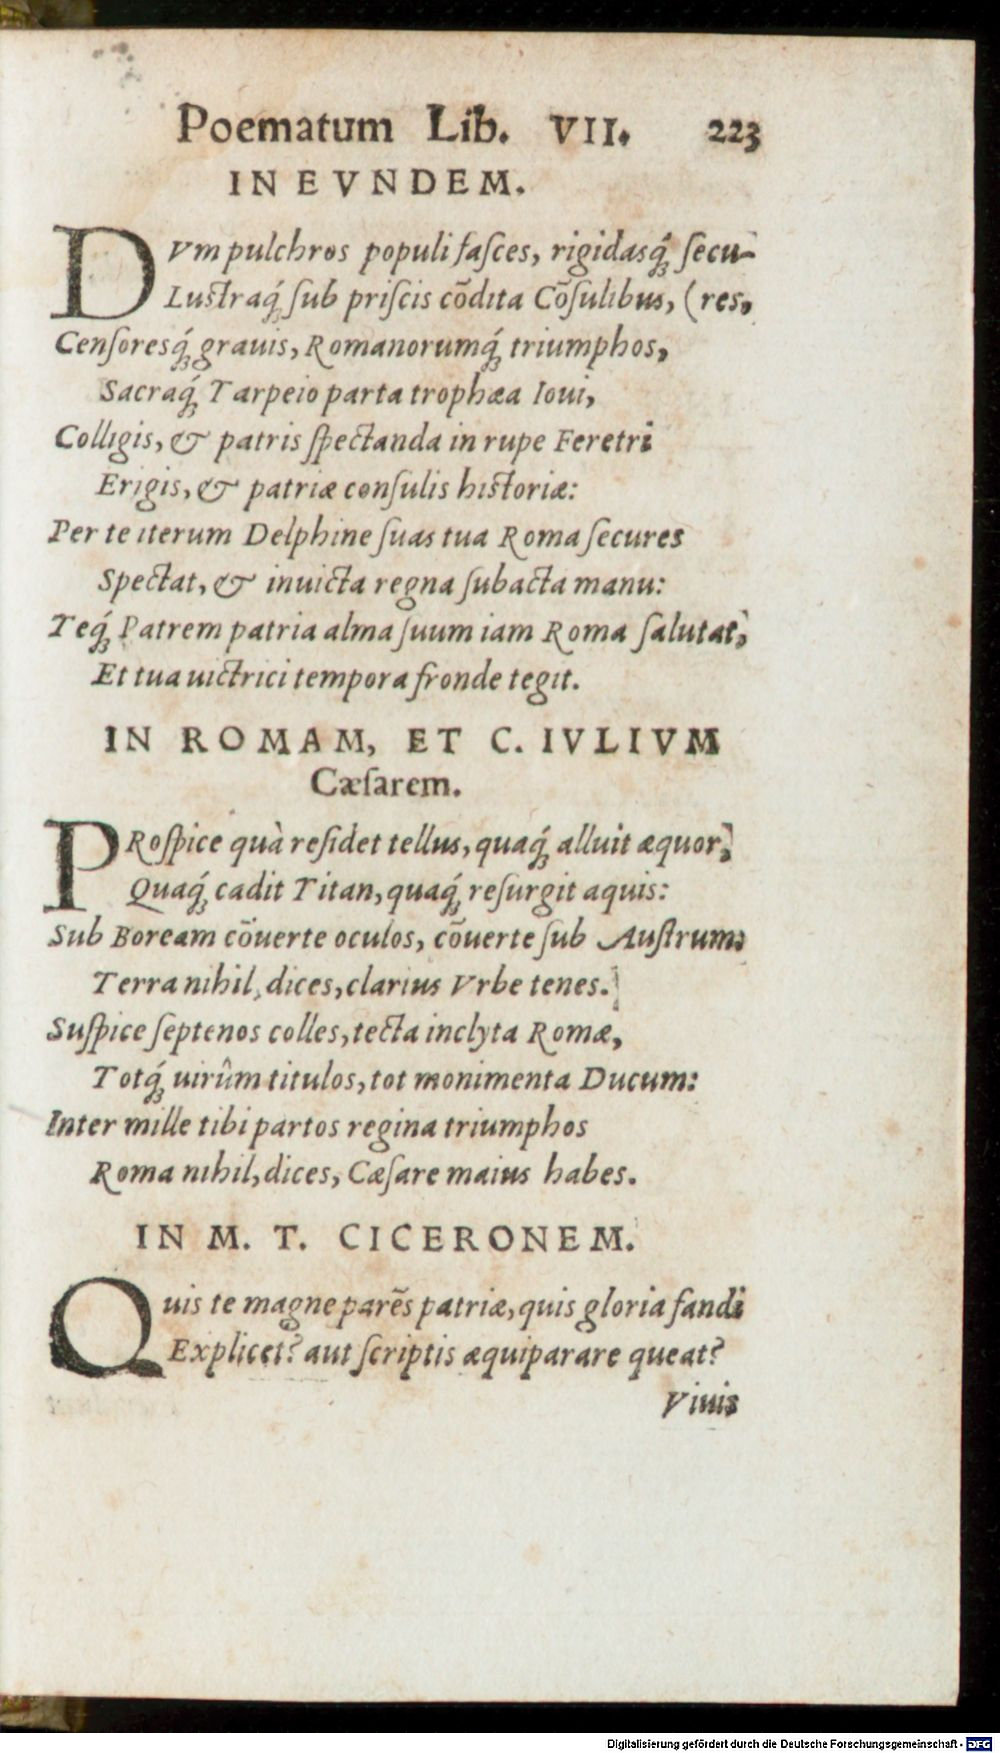 Poematum Lib. VII. 223
IN EVNDEM.
DVm pulchros populi fasces, rigidasq́; secu-
Lustraq́; sub priscis cōdita Cōsulibus, (res,
Censoresq́; grauis, Romanorumq́; triumphos,
Sacraq́; Tarpeio parta trophæa Ioui,
Colligis, & patris spectanda in rupe Feretri
Erigis, & patriæ consulis historiæ:
Per te iterum Delphine suas tua Roma secures
Spectat, & inuicta regna subacta manu:
Teq́; Patrem patria alma suum iam Roma salutat,
Et tua uictrici tempora fronde tegit.
IN ROMAM, ET C. IVLIVM
Cæsarem.
PRospice quà residet tellus, quaq́; alluit æquor,
Quaq́; cadit Titan, quaq́; resurgit aquis:
Sub Boream cōuerte oculos, cōuerte sub Austrum:
Terra nihil, dices, clarius Vrbe tenes.
Suspice septenos colles, tecta inclyta Romæ,
Totq́; uirûm titulos, tot monimenta Ducum:
Inter mille tibi partos regina triumphos
Roma nihil, dices, Cæsare maius habes.
IN M. T. CICERONEM.
Quis te magne parēs patriæ, quis gloria fandi
Explicet? aut scriptis æquiparare queat?
Viuis
Digitalisierung gefördert durch die Deutsche Forschungsgemeinschaft - DFG